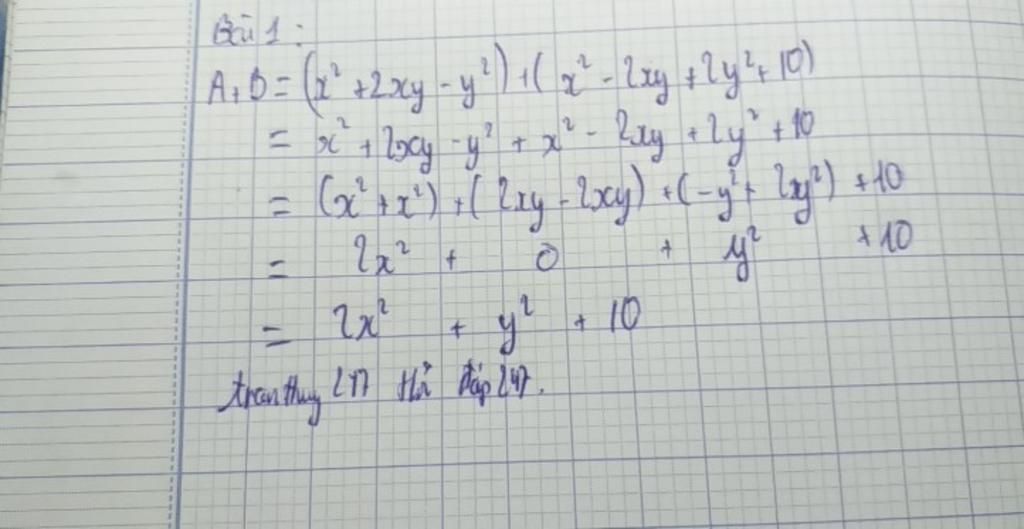 Bài 1:
A+B = (x² + 2xy - y²) + (x² - 2xy + 2y² + 10)
= x² + 2xy - y² + x² - 2xy + 2y² + 10
= (x² + x²) + (2xy - 2xy) + (-y² + 2y²) + 10
= 2x² + 0 + y² + 10
= 2x² + y² + 10
tranthuy 247 Hỏi đáp 247.